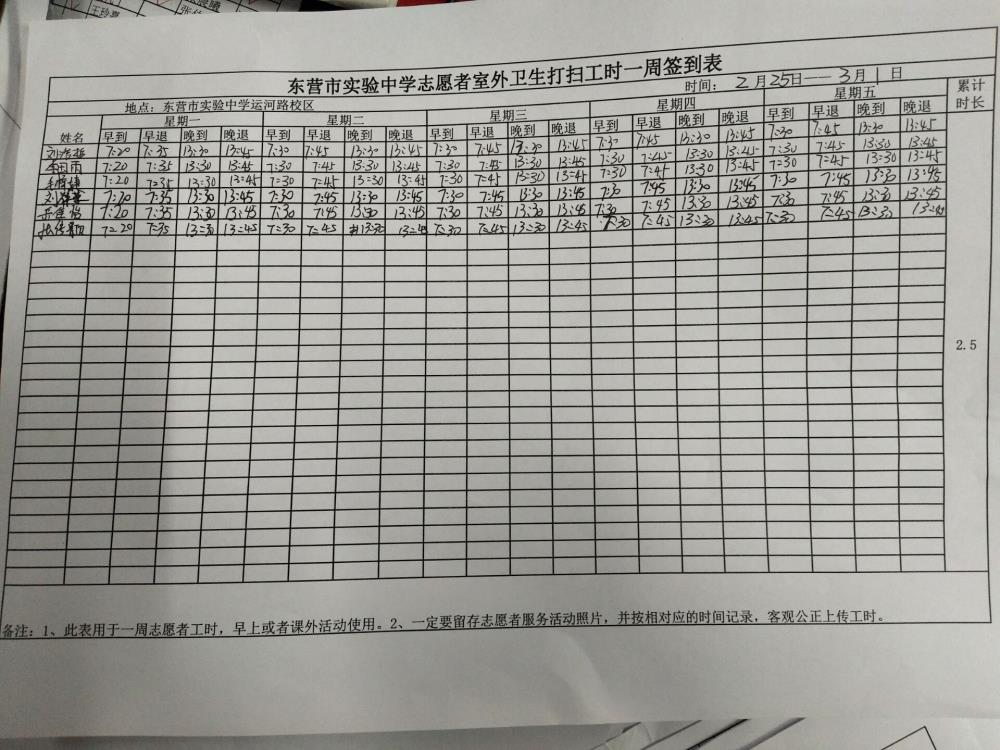 东营市实验中学志愿者室外卫生打扫工时一周签到表
时间： 2月25日——3月1日
地点：东营市实验中学运河路校区
星期一 星期二 星期三 星期四 星期五 累计时长
姓名 早到 早退 晚到 晚退 早到 早退 晚到 晚退 早到 早退 晚到 晚退 早到 早退 晚到 晚退 早到 早退 晚到 晚退
7:20 7:35 13:30 13:45 7:30 7:45 13:30 13:45 7:30 7:45 13:30 13:45 7:30 7:45 13:30 13:45 7:30 7:45 13:30 13:45
7:20 7:35 13:30 13:45 7:30 7:45 13:30 13:45 7:30 7:45 13:30 13:45 7:30 7:45 13:30 13:45 7:30 7:45 13:30 13:45
7:20 7:35 13:30 13:45 7:30 7:45 13:30 13:45 7:30 7:45 13:30 13:45 7:30 7:45 13:30 13:45 7:30 7:45 13:30 13:45
7:20 7:35 13:30 13:45 7:30 7:45 13:30 13:45 7:30 7:45 13:30 13:45 7:30 7:45 13:30 13:45 7:30 7:45 13:30 13:45
7:20 7:35 13:30 13:45 7:30 7:45 13:30 13:45 7:30 7:45 13:30 13:45 7:30 7:45 13:30 13:45 7:30 7:45 13:30 13:45
7:20 7:35 13:30 13:45 7:30 7:45 13:30 13:45 7:30 7:45 13:30 13:45 7:30 7:45 13:30 13:45 7:30 7:45 13:30 13:45
2.5
备注：1、此表用于一周志愿者工时，早上或者课外活动使用。2、一定要留存志愿者服务活动照片，并按相对应的时间记录，客观公正上传工时。